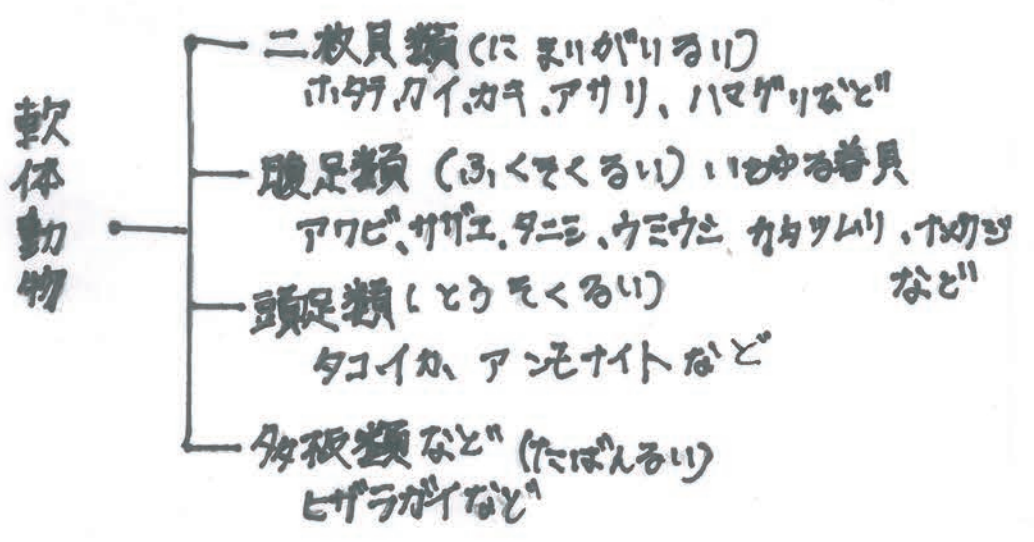 軟体動物
二枚貝類(にまいがいるい)
ホタテガイ、カキ、アサリ、ハマグリなど
腹足類(ふくそくるい)いわゆる巻貝
アワビ、サザエ、タニシ、ウミウシ カタツムリ、ナメクジ
など
頭足類(とうそくるい)
タコ、イカ、アンモナイトなど
多板類など(たばんるい)
ヒザラガイなど